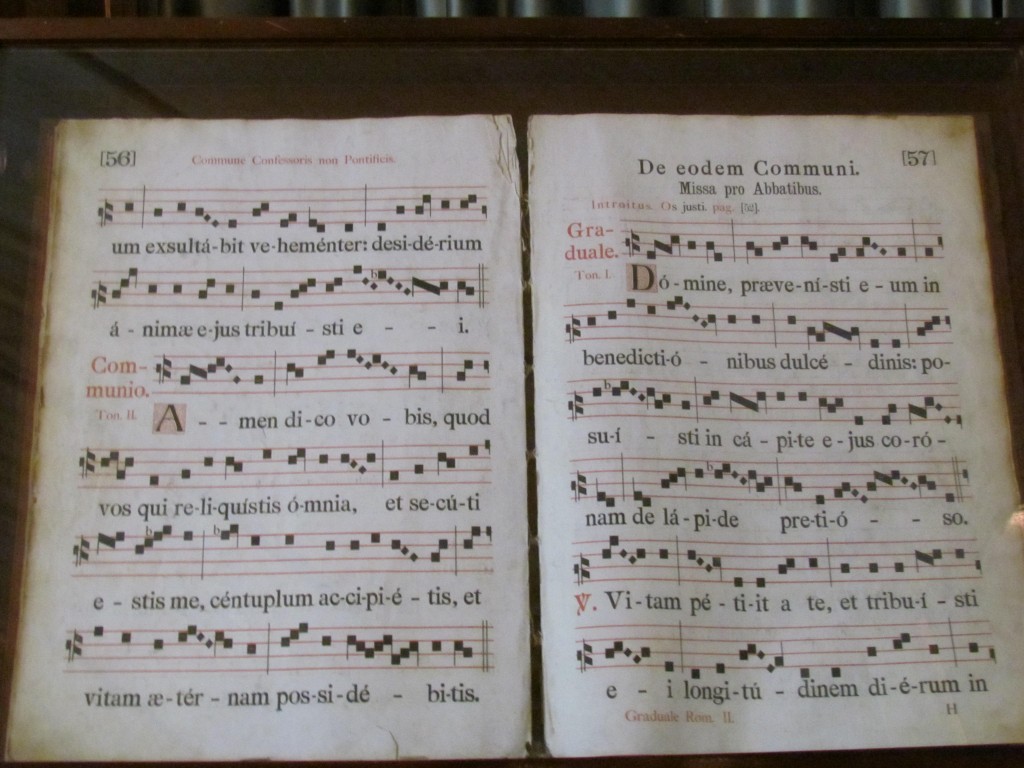 [56]
Commune Confessoris non Pontificis.
um exsultá-bit ve-heménter: desi-dé-rium
á - nimæ e-jus tribuí - sti e - - i.
Com-
munio.
Ton. II.
A - - men di-co vo - bis, quod
vos qui re-li-quístis ó-mnia, et se-cú-ti
e - stis me, céntuplum ac-ci-pi-é - tis, et
vitam æ-tér - nam pos-si-dé - bi-tis.
[57]
De eodem Communi.
Missa pro Abbatibus.
Introitus. Os justi. pag. [52].
Gra-
duale.
Ton. I.
Dó-mine, præve-ní-sti e - um in
benedicti-ó - nibus dulcé - dinis: po-
su-í - sti in cá - pi-te e-jus co-ró-
nam de lá-pi-de pre-ti-ó - - so.
℣. Vi-tam pé-ti-it a te, et tribu-í-sti
e - i longi-tú - dinem di-é-rum in
Graduale Rom. II.
H